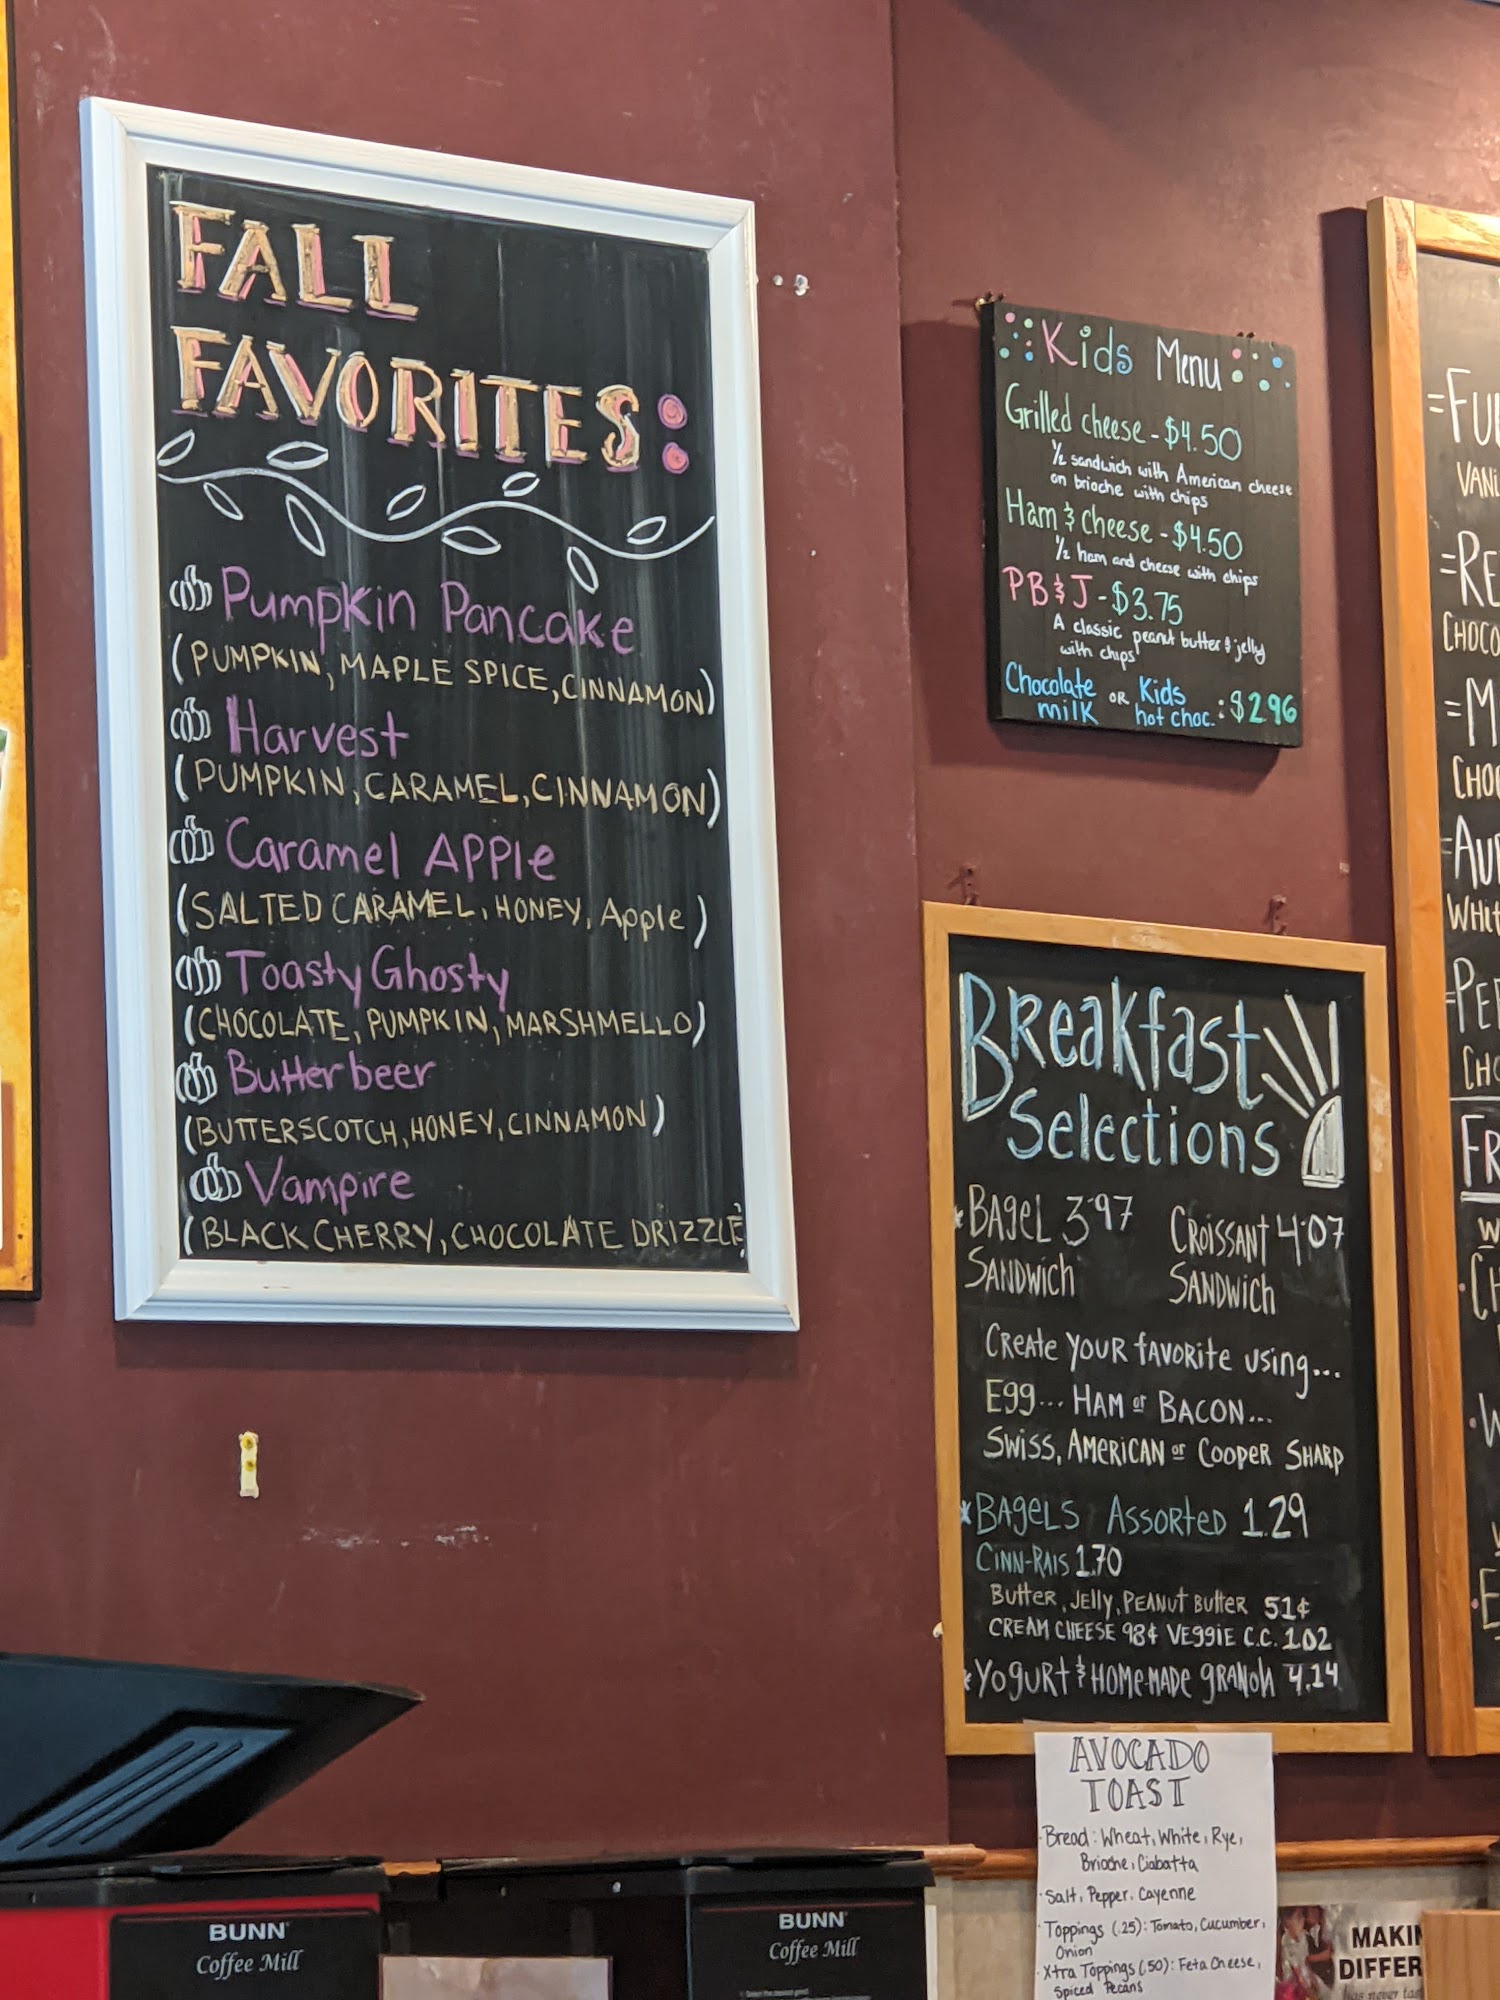 FALL
FAVORITES:
Pumpkin Pancake
(PUMPKIN, MAPLE SPICE, CINNAMON)
Harvest
(PUMPKIN, CARAMEL, CINNAMON)
Caramel APPle
(SALTED CARAMEL, HONEY, Apple)
Toasty Ghosty
(CHOCOLATE, PUMPKIN, MARSHMELLO)
Butterbeer
(BUTTERSCOTCH, HONEY, CINNAMON)
Vampire
(BLACK CHERRY, CHOCOLATE DRIZZLE)
Kids Menu
Grilled cheese - $4.50
1/2 sandwich with American cheese
on brioche with chips
Ham & cheese - $4.50
1/2 ham and cheese with chips
PB & J - $3.75
A classic peanut butter & jelly
with chips
Chocolate OR Kids
milk hot choc.: $2.96
Breakfast
Selections
* BAGEL 3.97 CROISSANT 4.07
SANDWICH SANDWICH
CREATE YOUR FAVORITE USING...
EGG... HAM or BACON...
SWISS, AMERICAN or COOPER SHARP
* BAGELS ASSORTED 1.29
CINN-RAIS 1.70
BUTTER, JELLY, PEANUT BUTTER 51¢
CREAM CHEESE 98¢ VEGGIE C.C. 1.02
* YOGURT & HOMEMADE GRANOLA 4.14
AVOCADO
TOAST
· Bread: Wheat, White, Rye,
Brioche, Ciabatta
· Salt, Pepper, Cayenne
· Toppings (.25): Tomato, Cucumber,
Onion
· Xtra Toppings (.50): Feta Cheese,
Spiced Pecans
BUNN
Coffee Mill
BUNN
Coffee Mill